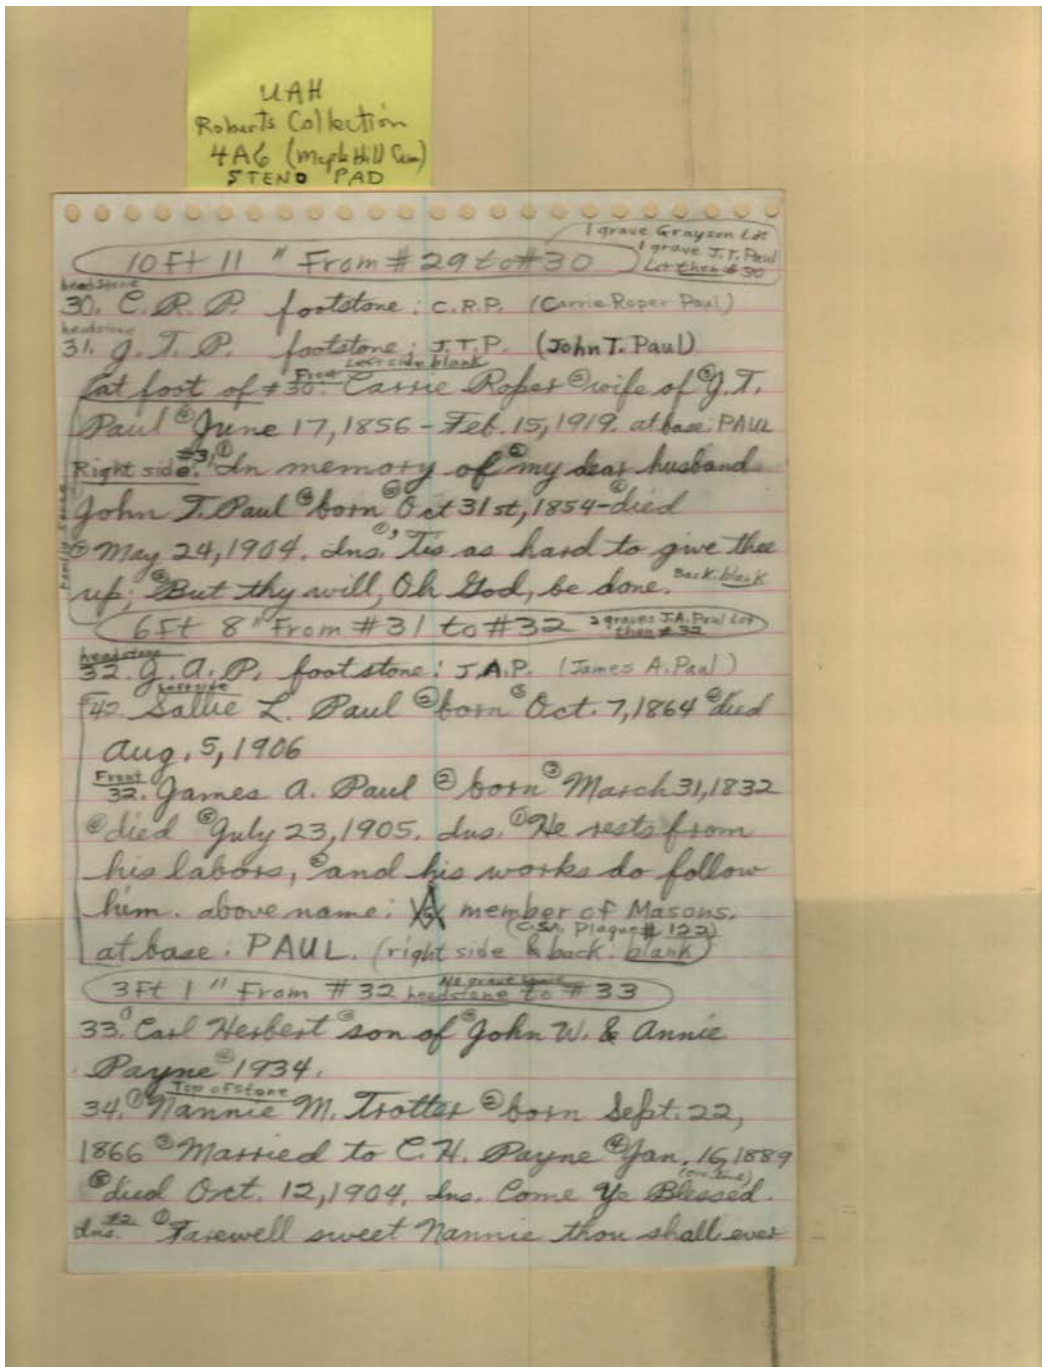 UAH
Roberts Collection
4A6 (Maple Hill Cem)
STENO PAD
1 grave Grayson Lot
1 grave J.T. Paul
Lot then #30
10 Ft 11 " From #29 to #30
headstone
30. C. R. P. footstone: C.R.P. (Carrie Roper Paul)
headstone
31. J. T. P. footstone: J.T.P. (John T. Paul)
Left side blank
at foot of #30. Front Carrie Roper ② wife of ③ J.T.
Paul ④ June 17, 1856 - Feb. 15, 1919. at base: PAUL
Right side: #31 ① In memory of ② my dear husband
③ John T. Paul ④ born ⑤ Oct 31st, 1854 - ⑥ died
⑦ May 24, 1904. Ins. ① 'Tis as hard to give thee
up; ② But thy will, Oh God, be done. Back: blank
Family Stone
6 Ft 8 " From #31 to #32 2 graves J.A. Paul Lot
then #32
headstone
32. J. A. P. footstone: J.A.P. (James A. Paul)
Left side
42. Sallie L. Paul ② born ③ Oct. 7, 1864 ④ died
Aug. 5, 1906
Front
32. James A. Paul ② born ③ March 31, 1832
④ died ⑤ July 23, 1905. Ins. ① He rests from
his labors, ② and his works do follow
him. above name: G member of Masons.
(C.S.A. Plaque # 122)
at base: PAUL. (right side & back: blank)
3 Ft 1 " From #32 headstone to #33
No grave space
33. ① Carl Herbert ② son of ③ John W. & Annie
Payne ④ 1934.
Top of Stone
34. ① Nannie M. Trotter ② born Sept. 22,
1866 ③ Married to C. H. Payne ④ Jan. 16, 1889
(one line)
⑤ died Oct. 12, 1904. Ins. Come Ye Blessed.
Ins. #2 ① Farewell sweet Nannie thou shall ever